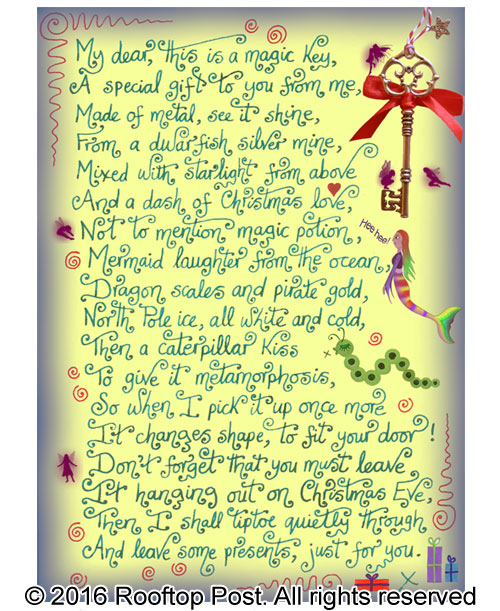 My dear, this is a magic key,
A special gift to you from me,
Made of metal, see it shine,
From a dwarfish silver mine,
Mixed with starlight from above
And a dash of Christmas love,
Not to mention magic potion,
Hee hee!
Mermaid laughter from the ocean,
Dragon scales and pirate gold,
North Pole ice, all white and cold,
Then a caterpillar kiss
x
To give it metamorphosis,
So when I pick it up once more
It changes shape, to fit your door!
Don't forget that you must leave
It hanging out on Christmas Eve,
Then I shall tiptoe quietly through
And leave some presents, just for you.
x
© 2016 Rooftop Post. All rights reserved